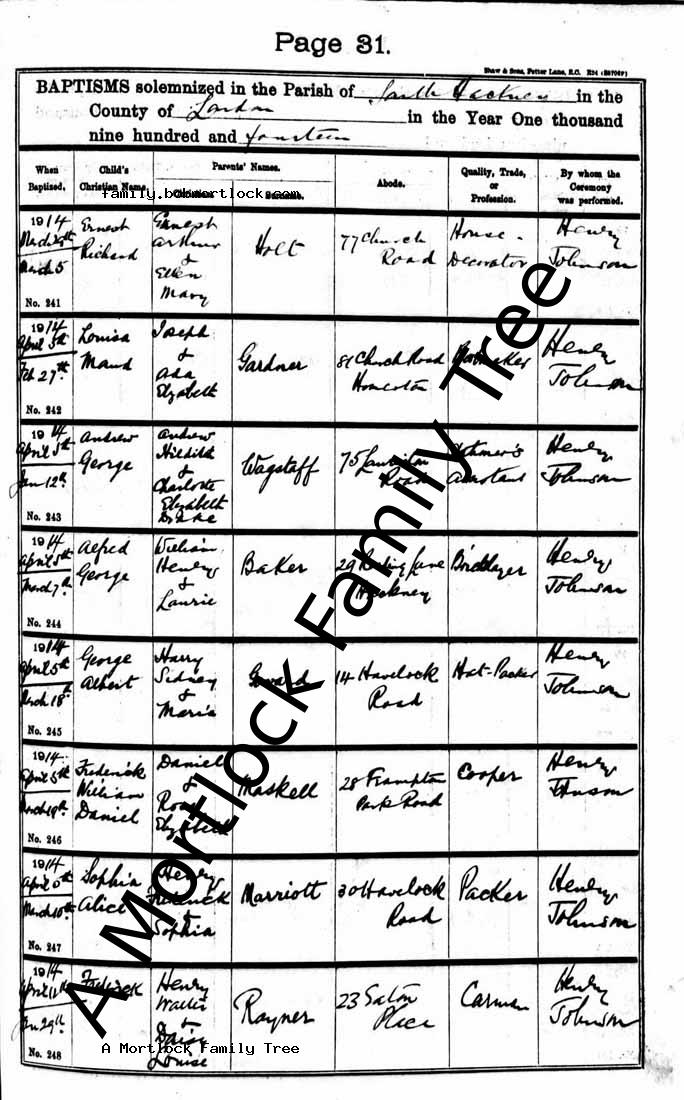 Page 31.
Shaw & Sons, Fetter Lane, E.C.
BAPTISMS solemnized in the Parish of South Hackney in the
County of London in the Year One thousand
nine hundred and fourteen
When Baptized.
Child's Christian Name.
Parents' Names.
Abode.
Quality, Trade, or Profession.
By whom the Ceremony was performed.
family.bobmortlock.com
1914
March 29th
March 5
No. 241
Ernest
Richard
Ernest
Arthur
&
Ellen
Mary
Holt
77 Church
Road
House-
Decorator
Henry
Johnson
1914
April 5th
Feb 27th
No. 242
Louisa
Maud
Joseph
&
Ada
Elizabeth
Gardner
81 Church Road
Homerton
Henry
Johnson
1914
April 5th
Jan 12th
No. 243
Andrew
George
Andrew
&
Charlotte
Elizabeth
Wagstaff
75 Lauriston
Road
Henry
Johnson
1914
April 5th
March 7th
No. 244
Alfred
George
William
Henry
&
Laurie
Baker
29
Hackney
Bricklayer
Henry
Johnson
1914
April 5th
March 18th
No. 245
George
Albert
Harry
Sidney
&
Maria
14 Havelock
Road
Hat-Packer
Henry
Johnson
1914
April 5th
March 19th
No. 246
Frederick
William
Daniel
Daniel
&
Elizabeth
Maskell
28 Frampton
Park Road
Cooper
Henry
Johnson
1914
April 5th
March 10th
No. 247
Sophia
Alice
Henry
Frederick
&
Sophia
Marriott
30 Havelock
Road
Packer
Henry
Johnson
1914
April 11th
Jan 29th
No. 248
Frederick
Henry
Walter
&
Daisy
Louise
Rayner
23 Eaton
Place
Carman
Henry
Johnson
A Mortlock Family Tree
A Mortlock Family Tree